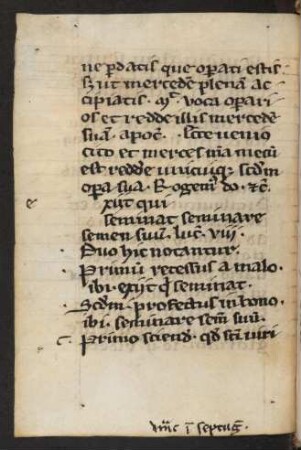 ne perdatis que operati estis
sed ut mercedem plenam ac
cipiatis. Mt. voca operari
os et redde illis mercedem
suam. apoc. Ecce uenio
cito et merces mea mecum
est reddere unicuique secundum
opera sua. Rogemus do. etc.
Exiit qui
seminat seminare
semen suum. luc. viii.
Duo hic notantur.
Primum recessus a malo.
ibi. exiit qui seminat.
Secundum profectus in bono.
ibi. seminare semen suum.
Primo sciendum quod sancti uiri
e
in septuag.